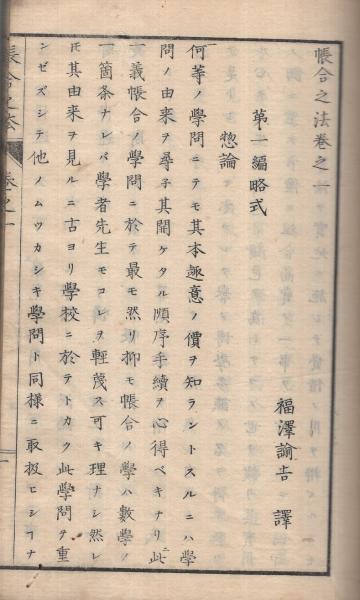 帳合之法巻之一
福澤諭吉 譯
第一編略式
惣論
何等ノ學問ニテモ其本趣意ノ價ヲ知ラントスルニハ學
問ノ由来ヲ尋子其開ケタル順序手續ヲ心得ベキナリ此
一義帳合ノ學問ニ於テ最モ然リ抑モ帳合ノ學ハ數學ノ
一箇条ナレバ學者先生モコレヲ輕蔑ス可キ理ナシ然レ
𪜈其由来ヲ見ルニ古ヨリ學校ニ於テトカク此學問ヲ重
ンゼズシテ他ノムツカシキ學問ト同様ニ取扱ヒシヿナ
帳合之法
巻之一
一